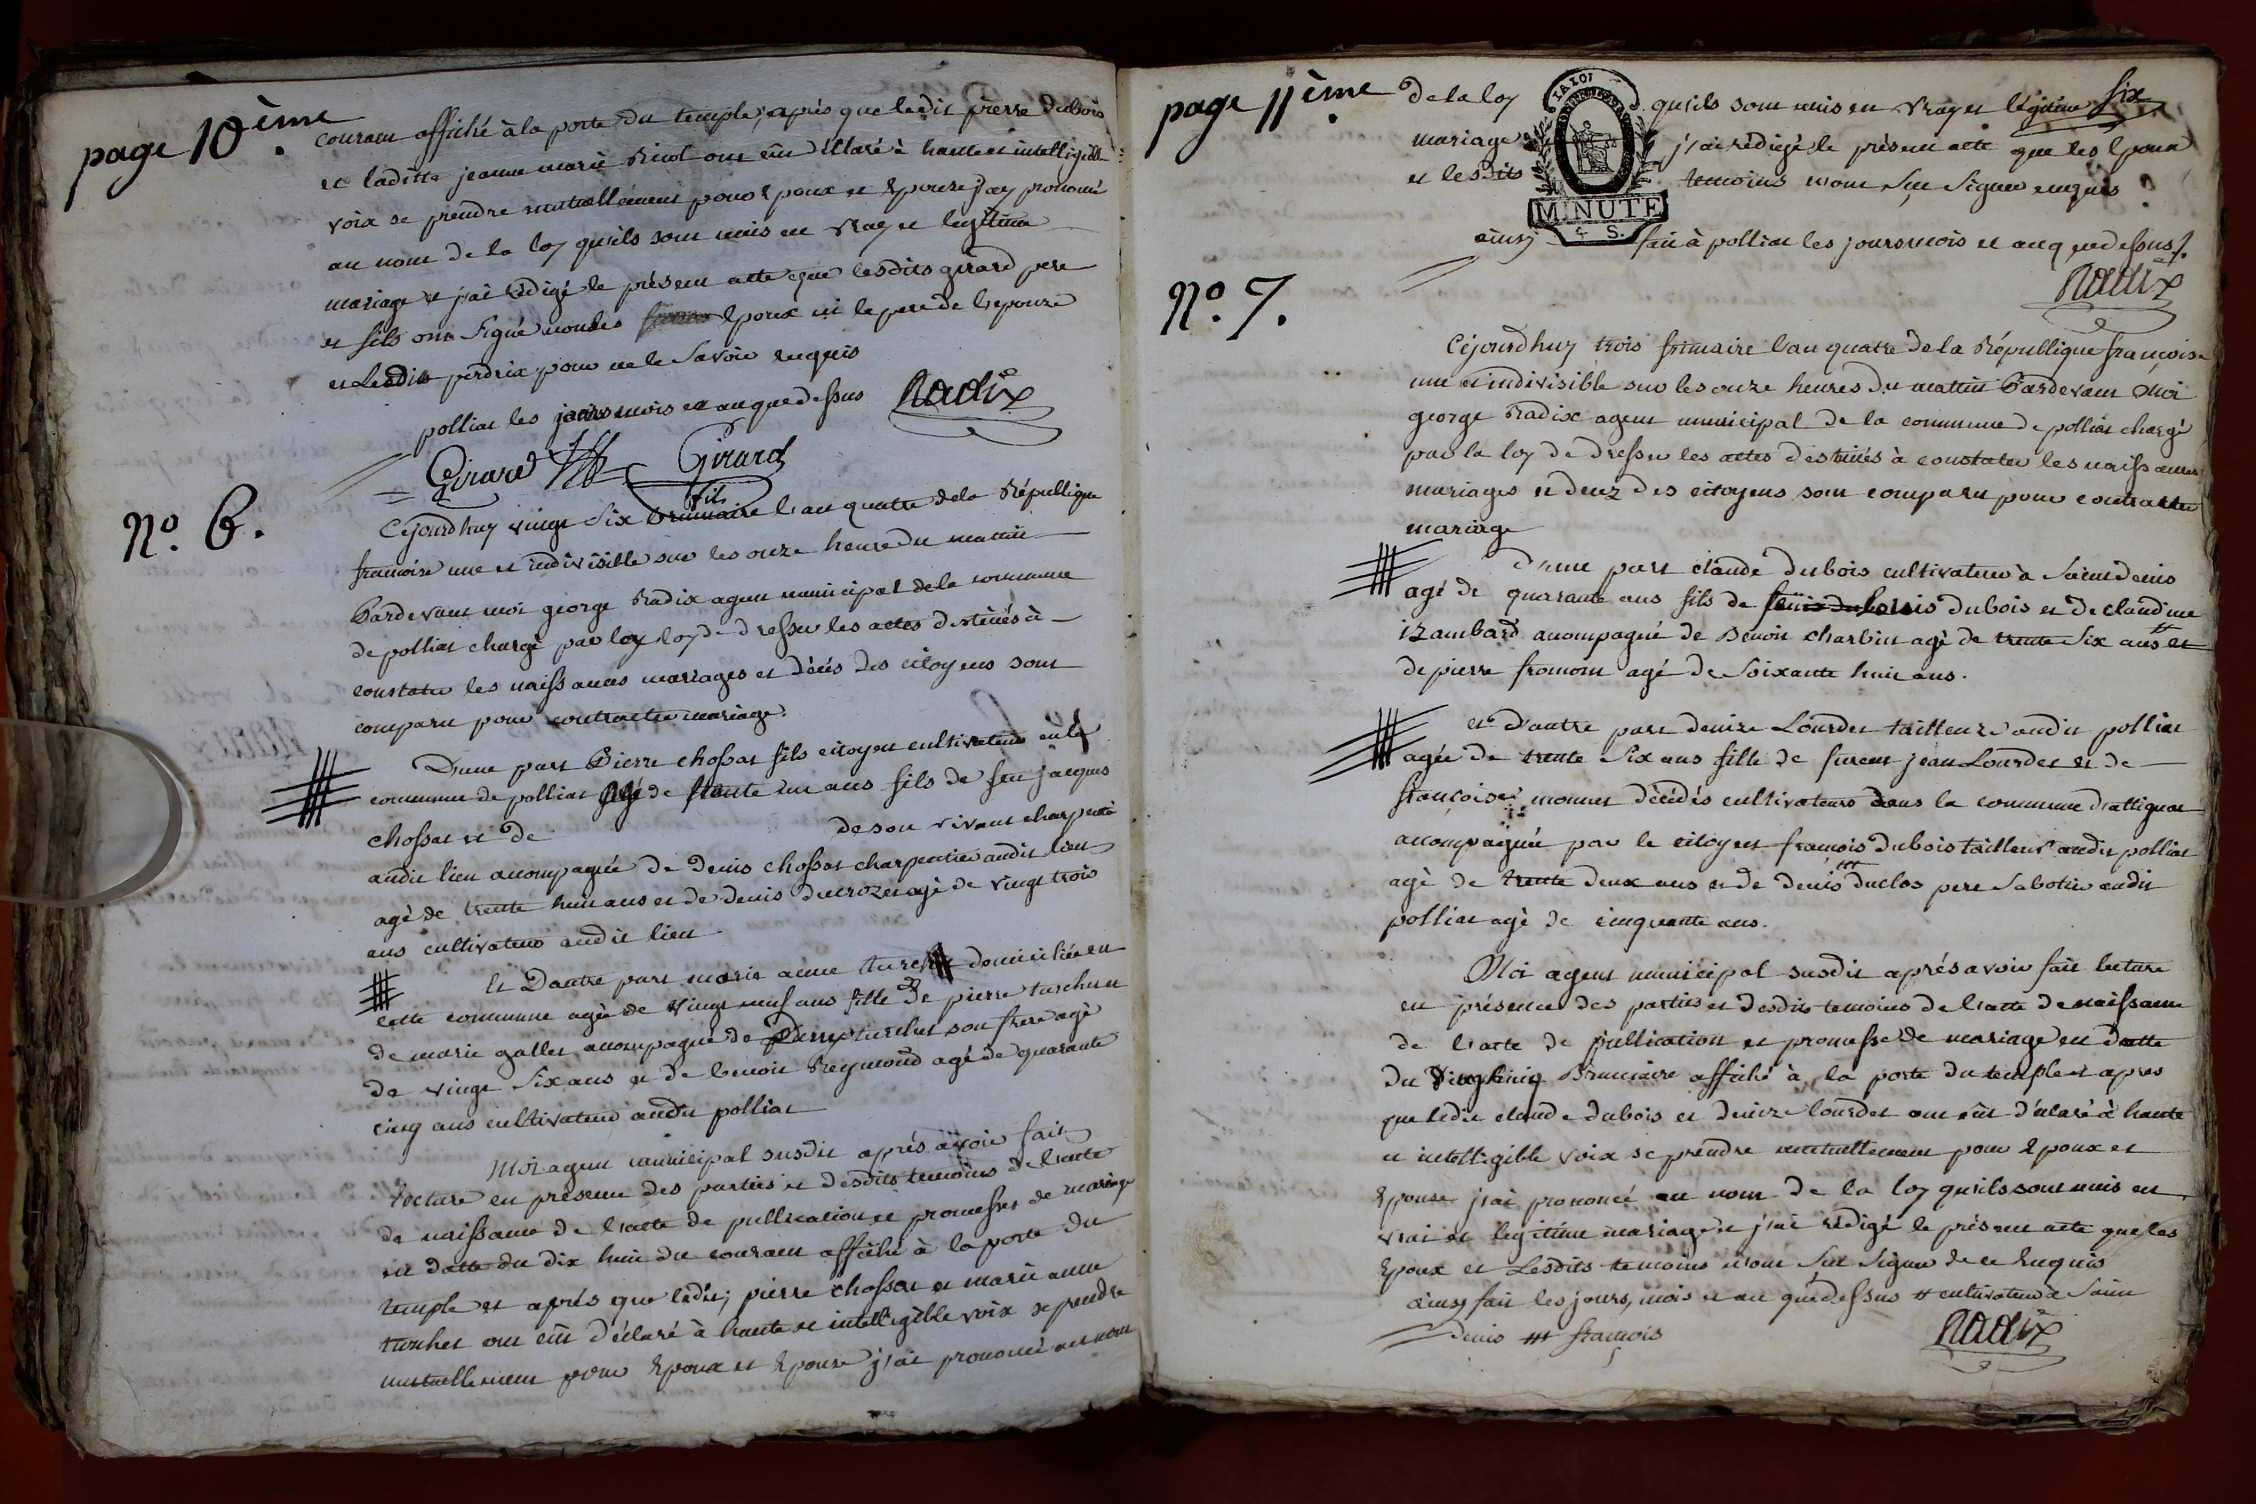 page 10ème.
courant affiché à la porte du temple, après que ledit pierre dubois
et laditte jeanne marie Ricol ont eût d'éclaré à haute et intelligible
voix se prendre mutuellement pour Epoux et Epouse j'ay prononcé
au nom de la loy qu'ils sont unis en vray et legitime
mariage et j'ai rédigé le présent acte que lesdits girard pere
et fils ont signé non les Epoux ni le pere de l'epouze
et Ledit perdrix pour ne le Savoir enquis
pollias les jours mois et an que dessus Radix
Girard Girard
fils
No. 6.
Cejourdhuy vingt Six brumaire l'an quatre de la République
francoise une et indivisible sur les onze heure du matin
Pardevant moi george Radix agent municipal de la commune
de polliat chargé par loy loy de dresser les actes destinés à
constater les naissances mariages et décés des citoyens sont
comparu pour contracter mariage.
D'une part Pierre chossat fils citoyen cultivateur en la
commune de polliat agé de trante un ans fils de feu jacques
chossat et de de son vivant charpentié
audit lieu acompagnée de Denis chossat charpentier audit lieu
agé de trente huit ans et de denis ducrozet agé de vingt trois
ans cultivateur audit lieu
Et Dautre part marie anne turchet domiciliée en
cette commune agée de vingt neuf ans fille de pierre turchet et
de marie gallet acompagné de Pierre turchet son frere agé
de vingt Six ans et de benoit Reymond agé de quarante
cinq ans cultivateur audit polliat
Moi agent municipal susdit après avoir fait
lecture en présence des parties et desdits temoins de l'acte
de naissance de l'acte de publication et promesses de mariage
en datte du dix huit du courant affiché à la porte du
temple et après que ledit; pierre chossat et marie anne
turchet ont eût d'éclaré à haute et intelligible voix se prendre
mutuellement pour Epoux et Epouse j'ai prononcé au nom
page 11ème.
de la loy qu'ils sont unis en vray et légitime six
mariage j'ai rédigé le présent acte que les Epoux
et lesdits temoins n'ont Sçu Signer enquis
LA LOI
MINUTE
4 S.
ainsy fait à polliat les jours mois et an que dessus.
Radix
No. 7.
Cejourdhuy trois frimaire l'an quatre de la République françoise
une et indivisible sur les onze heures du mattin Pardevant Moi
george Radix agent municipal de la commune de polliat chargé
par la loy de dresser les actes destinés à constater les naissances
mariages et decez des citoyens sont comparu pour contracter
mariage
D'une part claude dubois cultivateur à Saint denis
agé de quarante ans fils de dubois et de claudine
izambard acompagné de Benoit charbin agé de trente Six ans # et
de pierre fromont agé de Soixante huit ans.
et d'autre part denize Lourdet tailleuze audit polliat
agée de trente Six ans fille de furent jean Lourdet et de
françoise monnet décédés cultivateurs dans la commune d'attignat
acompagnée par le citoyen francois dubois tailleur audit polliat
agé de trente deux ans et de denis ### duclos pere Sabotier audit
polliat agé de cinquante ans.
Moi agent municipal susdit aprés avoir fait lecture
en présence des parties et desdits temoins de l'acte de naissance
de l'acte de publication et promesse de mariage en datte
du vingt cinq Brumaire affiché à la porte du temple et apres
que ledit claude dubois et denize lourdet ont eût d'éclaré à haute
et intelligible voix se prendre mutuellement pour Epoux et
Epouse j'ai prononcé au nom de la loy qu'ils sont unis en
vrai et legitime mariage et j'ai rédigé le présent acte que les
Epoux et Lesdits temoins n'ont Sçu Signer de ce Enquis
ainsy fait les jours, mois et an que dessus # cultivateur à Saint
denis ### francois
Radix